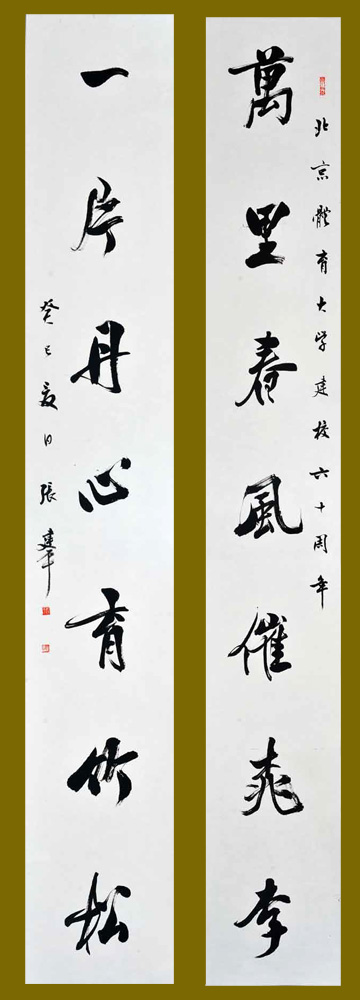 北京體育大学建校六十周年
萬里春風催桃李
一片丹心育竹松
癸巳夏日張建華